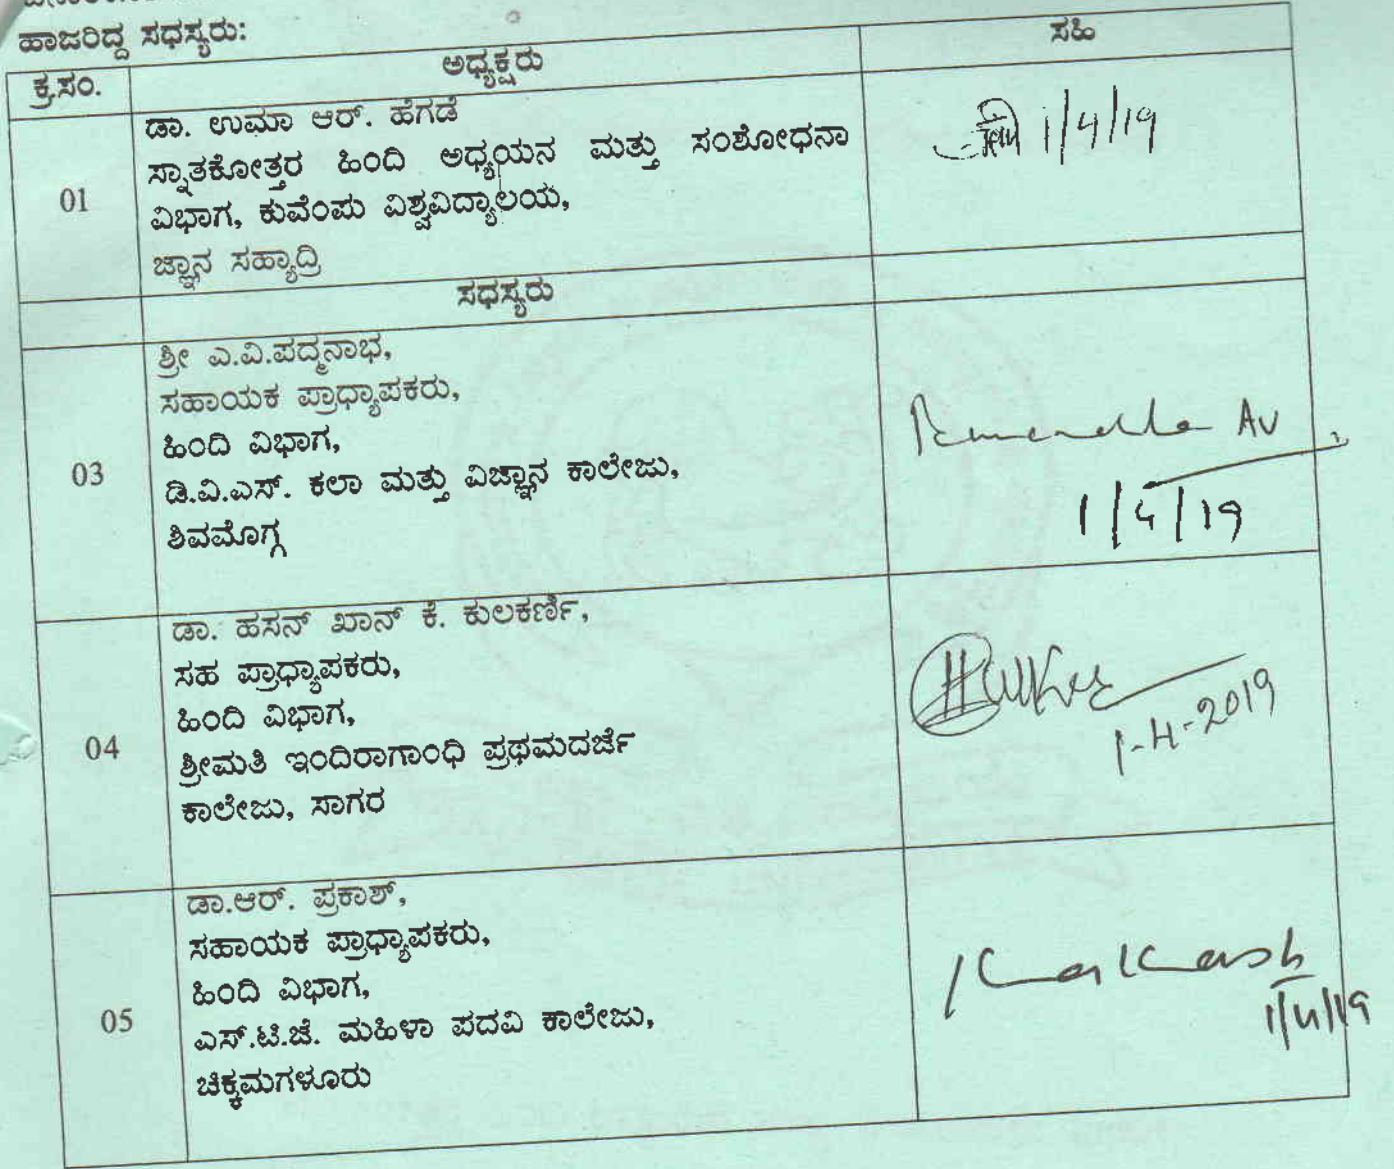 ಹಾಜರಿದ್ದ ಸಧಸ್ಯರು:
ಕ್ರ.ಸಂ. ಅಧ್ಯಕ್ಷರು ಸಹಿ
01
ಡಾ. ಉಮಾ ಆರ್. ಹೆಗಡೆ
ಸ್ನಾತಕೋತ್ತರ ಹಿಂದಿ ಅಧ್ಯಯನ ಮತ್ತು ಸಂಶೋಧನಾ
ವಿಭಾಗ, ಕುವೆಂಪು ವಿಶ್ವವಿದ್ಯಾಲಯ,
ಜ್ಞಾನ ಸಹ್ಯಾದ್ರಿ
1/4/19
ಸಧಸ್ಯರು
03
ಶ್ರೀ ಎ.ವಿ.ಪದ್ಮನಾಭ,
ಸಹಾಯಕ ಪ್ರಾಧ್ಯಾಪಕರು,
ಹಿಂದಿ ವಿಭಾಗ,
ಡಿ.ವಿ.ಎಸ್. ಕಲಾ ಮತ್ತು ವಿಜ್ಞಾನ ಕಾಲೇಜು,
ಶಿವಮೊಗ್ಗ
AV
1/4/19
04
ಡಾ. ಹಸನ್ ಖಾನ್ ಕೆ. ಕುಲಕರ್ಣಿ,
ಸಹ ಪ್ರಾಧ್ಯಾಪಕರು,
ಹಿಂದಿ ವಿಭಾಗ,
ಶ್ರೀಮತಿ ಇಂದಿರಾಗಾಂಧಿ ಪ್ರಥಮದರ್ಜೆ
ಕಾಲೇಜು, ಸಾಗರ
1-4-2019
05
ಡಾ.ಆರ್. ಪ್ರಕಾಶ್,
ಸಹಾಯಕ ಪ್ರಾಧ್ಯಾಪಕರು,
ಹಿಂದಿ ವಿಭಾಗ,
ಎಸ್.ಟಿ.ಜೆ. ಮಹಿಳಾ ಪದವಿ ಕಾಲೇಜು,
ಚಿಕ್ಕಮಗಳೂರು
1/4/19